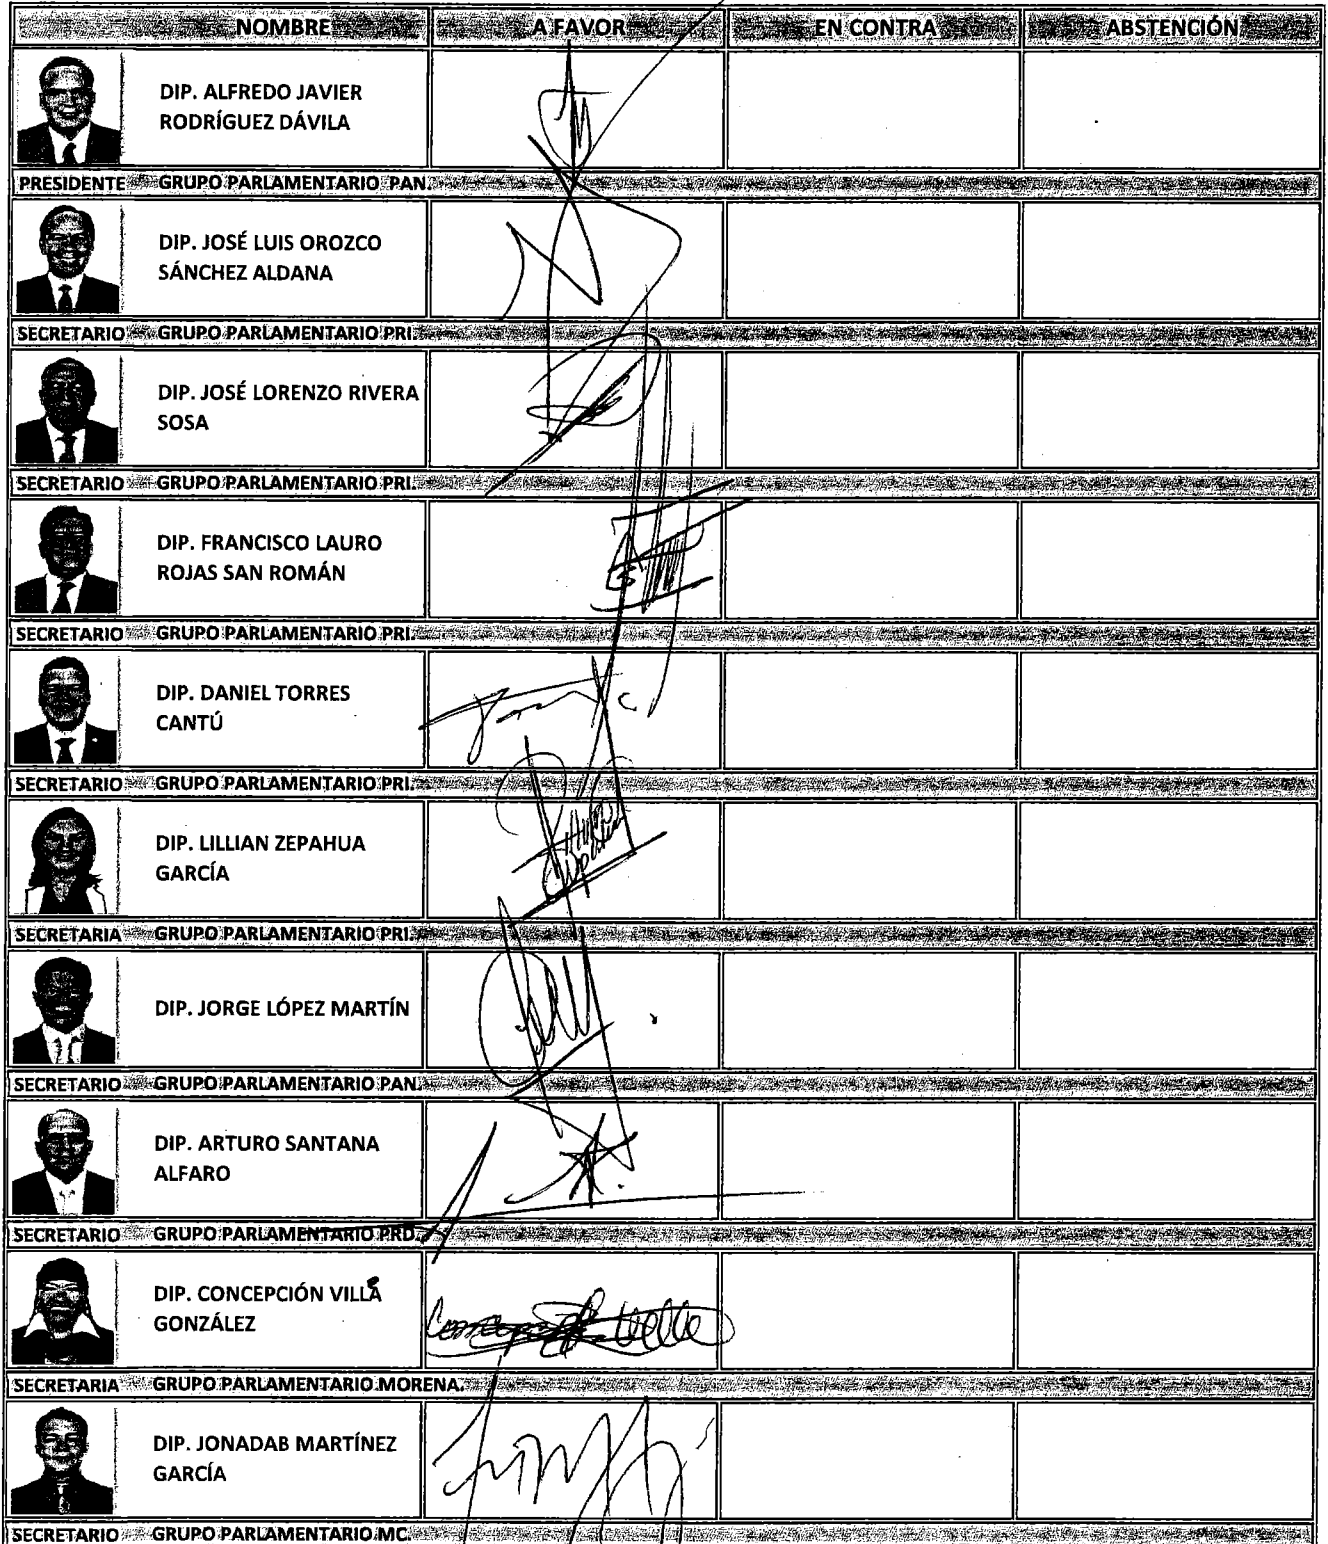 NOMBRE A FAVOR EN CONTRA ABSTENCIÓN
DIP. ALFREDO JAVIER
RODRÍGUEZ DÁVILA
PRESIDENTE GRUPO PARLAMENTARIO PAN.
DIP. JOSÉ LUIS OROZCO
SÁNCHEZ ALDANA
SECRETARIO GRUPO PARLAMENTARIO PRI.
DIP. JOSÉ LORENZO RIVERA
SOSA
SECRETARIO GRUPO PARLAMENTARIO PRI.
DIP. FRANCISCO LAURO
ROJAS SAN ROMÁN
SECRETARIO GRUPO PARLAMENTARIO PRI.
DIP. DANIEL TORRES
CANTÚ
SECRETARIO GRUPO PARLAMENTARIO PRI.
DIP. LILLIAN ZEPAHUA
GARCÍA
SECRETARIA GRUPO PARLAMENTARIO PRI.
DIP. JORGE LÓPEZ MARTÍN
SECRETARIO GRUPO PARLAMENTARIO PAN.
DIP. ARTURO SANTANA
ALFARO
SECRETARIO GRUPO PARLAMENTARIO PRD.
DIP. CONCEPCIÓN VILLA
GONZÁLEZ
SECRETARIA GRUPO PARLAMENTARIO MORENA.
DIP. JONADAB MARTÍNEZ
GARCÍA
SECRETARIO GRUPO PARLAMENTARIO MC.